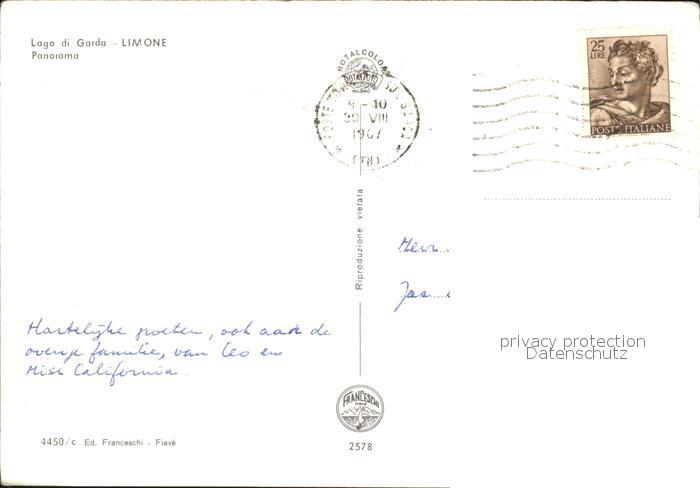 Lago di Garda - LIMONE
Panorama
ROTALCOLOR
ROTALFOTO
MILANO
9-10
30 VIII
1967
(TN)
25
LIRE
POSTE ITALIANE
Riproduzione vietata
Hartelijke groeten, ook aan de
overige familie, van Leo en
Miss California
privacy protection
Datenschutz
FRANCESCHI
FIAVÈ
4450/c Ed. Franceschi - Fiavè
2578